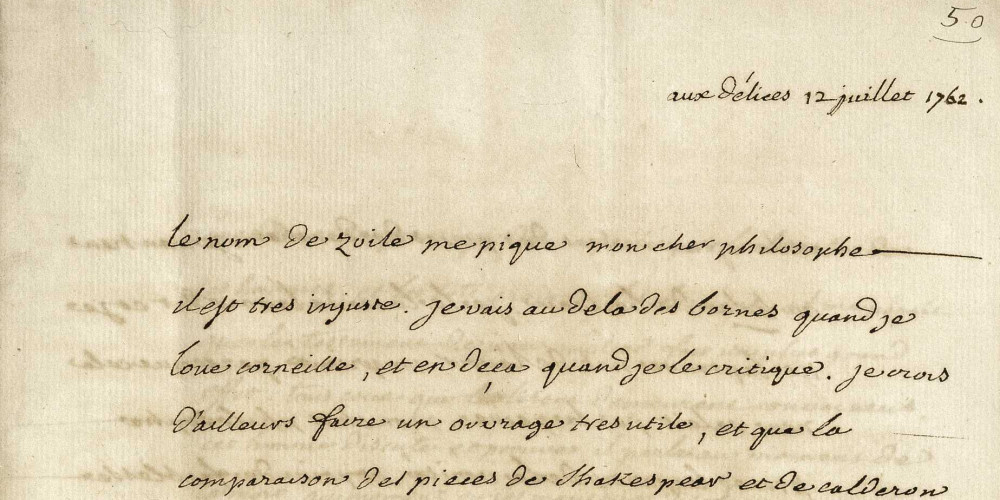 50
aux délices 12 juillet 1762.
le nom de zoile me pique mon cher philosophe
il est tres injuste. je vais au dela des bornes quand je
loue corneille, et en deça quand je le critique. je crois
d'ailleurs faire un ouvrage tres utile, et que la
comparaison des pieces de Shakespear et de calderon